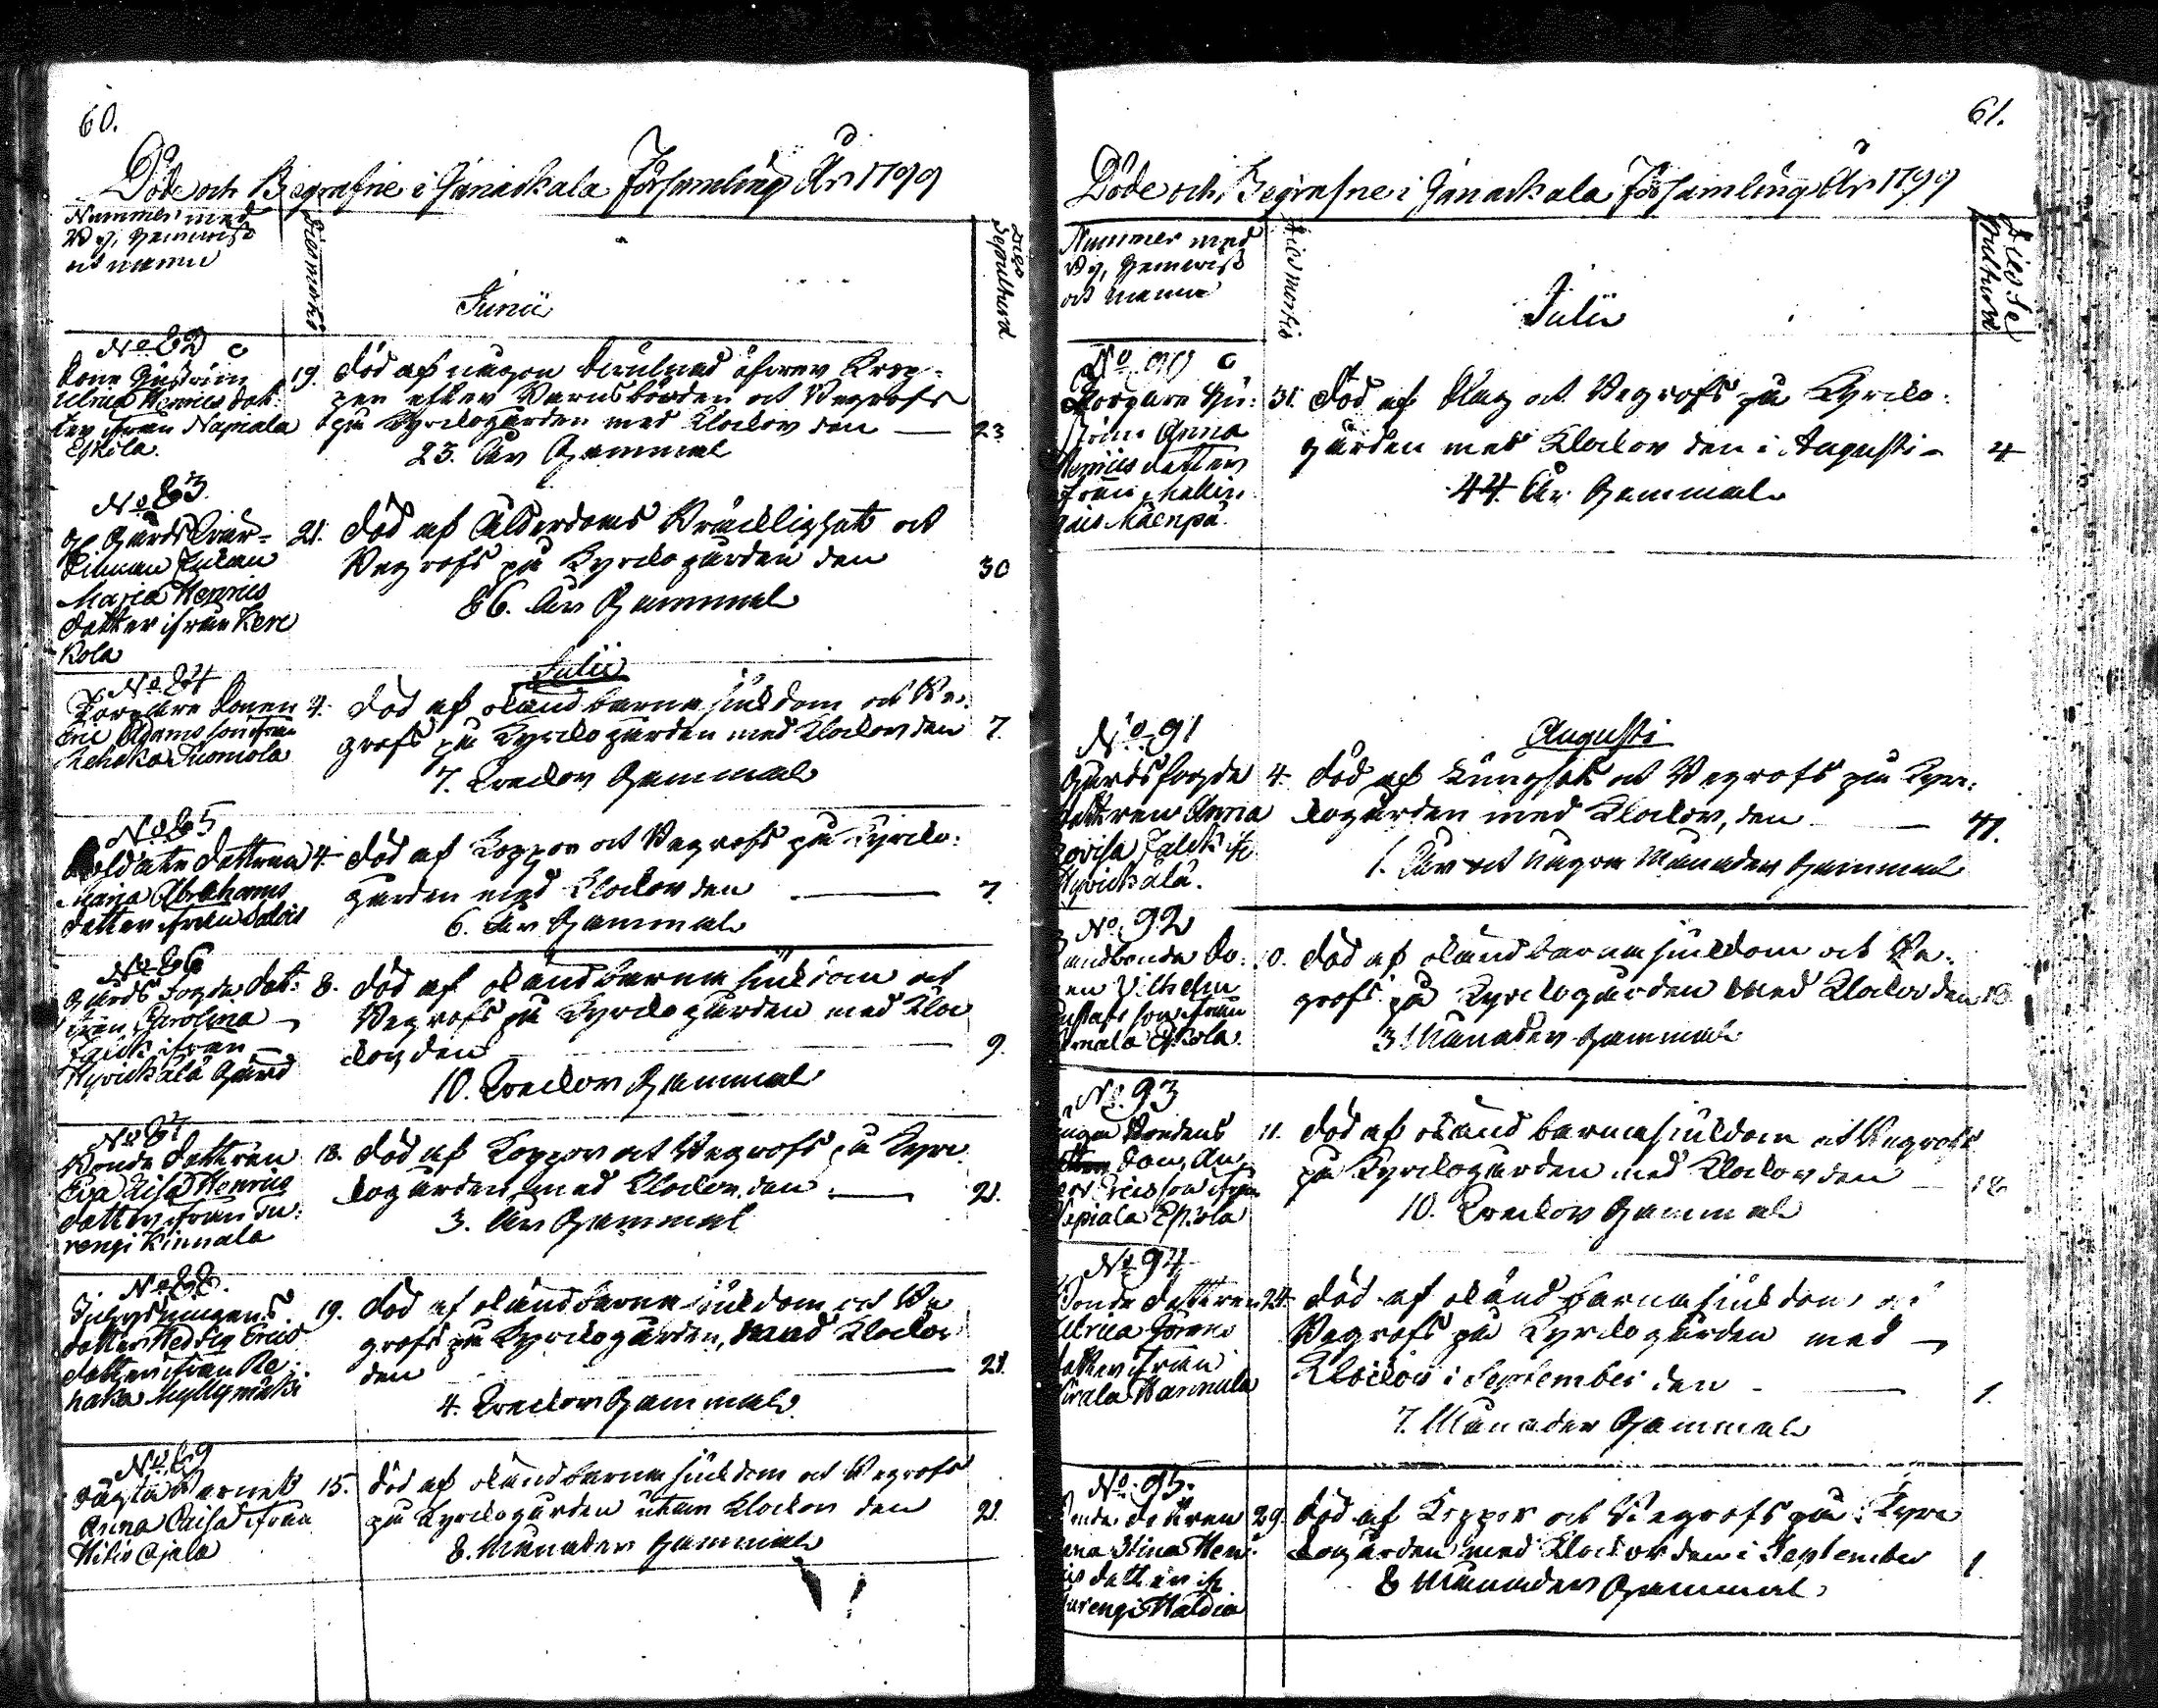 60.
Döde och Begrafne i Janackala Församling År 1799
Nummer med
By, Hemvist
och namn
Dies mortis
Junii
Dies Sepulturæ
No 82
Ulrica Henrics dot-
ter ifrån Napiala
Eskola.
19. död af någon åfver Krop-
pen efter Barnsbörden och Begrofs
på Kyrckogården med Klockor den — 23
23. År Gammal
No 83.
Maria Henrics
dotter ifrån Kere
kola
21. död af Ålderdoms Bräcklighet och
Begrofs på Kyrckogården den 30
86. År Gammal
Julii
No 84
Torpare Sonen
Eric Adams son ifrån
Rehaka Tuomola
4. död af okänd barnasjukdom och Be-
grofs på Kyrckogården med Klockor den 7.
7. Veckor Gammal
No 85
Soldate dottren
Maria Abrahams
dotter ifrån Salois
4. död af Koppor och Begrofs på Kyrcko-
gården med Klockor den — 7
6. År Gammal
No 86
Gårds Fogde dot-
tren Carolina
ifrån
Hyvickälä Gård
8. död af okänd barnasjukdom och
Begrofs på Kyrckogården med Kloc
kor den — 9.
10. Veckor Gammal
No 87
Bonde dottren
Eva Caisa Henrics
dotter ifrån Tu-
rengi Kinnala
18. död af Koppor och Begrofs på Kyrc
kogården med Klockor den — 21.
3. År Gammal
No 88.
Inhysningens
dotter Hedvig Erics
dotter ifrån Re-
haka Myllymäki
19. död af okänd barnasjukdom och Be
grofs på Kyrckogården, med Klockor
den — 21.
4. Veckor Gammal
No 89
oägta Barnet
Anna Caisa ifrån
Hitis Ojala
15. död af okänd barnasjukdom och Begrofs
på Kyrckogården utan Klockor den 21.
8. Månader Gammal
61.
Döde och Begrafne i Janackala Församling År 1799
Nummer med
By, Hemvist
och namn
Dies mortis
Julii
Dies Sepulturæ
No 90
Torpare Hu-
strun Anna
Henrics dotter
ifrån
Mäenpä.
31. död af Slag och Begrofs på Kyrcko-
gården med Klockor den i Augusti — 4
44 År Gammal
Augusti
No 91
Gårdsfogde
dottren Anna
Lovisa
Hyvickälä.
4. död af och Begrofs på Kyrc-
kogården med Klockor, den — 11.
1. År och några Månader Gammal
No 92
Landbonde So-
nen Vilhelm
Gustafs son ifrån
Eskola
10. död af okänd barnasjukdom och Be-
grofs på Kyrckogården med Klockor den 18.
3 Månader Gammal
No 93
Bondens
Son, An
ders Ericsson ifrån
Napiala Eskola
11. död af okänd barnasjukdom och Begrofs
på Kyrckogården med Klockor den — 18
10. Veckor Gammal
No 94
Bonde dottren
Ulrica Görans
dotter ifrån
Hannula
24. död af okänd barnasjukdom och
Begrofs på Kyrckogården med
Klockor i September den — 1.
7. Månader Gammal
No 95.
Bonde dottren
Anna Stina Hen-
rics dotter ifr
Turengi Haldia
29. död af Koppor och Begrofs på Kyrc
kogården med Klockor den i September 1
8 Månader Gammal